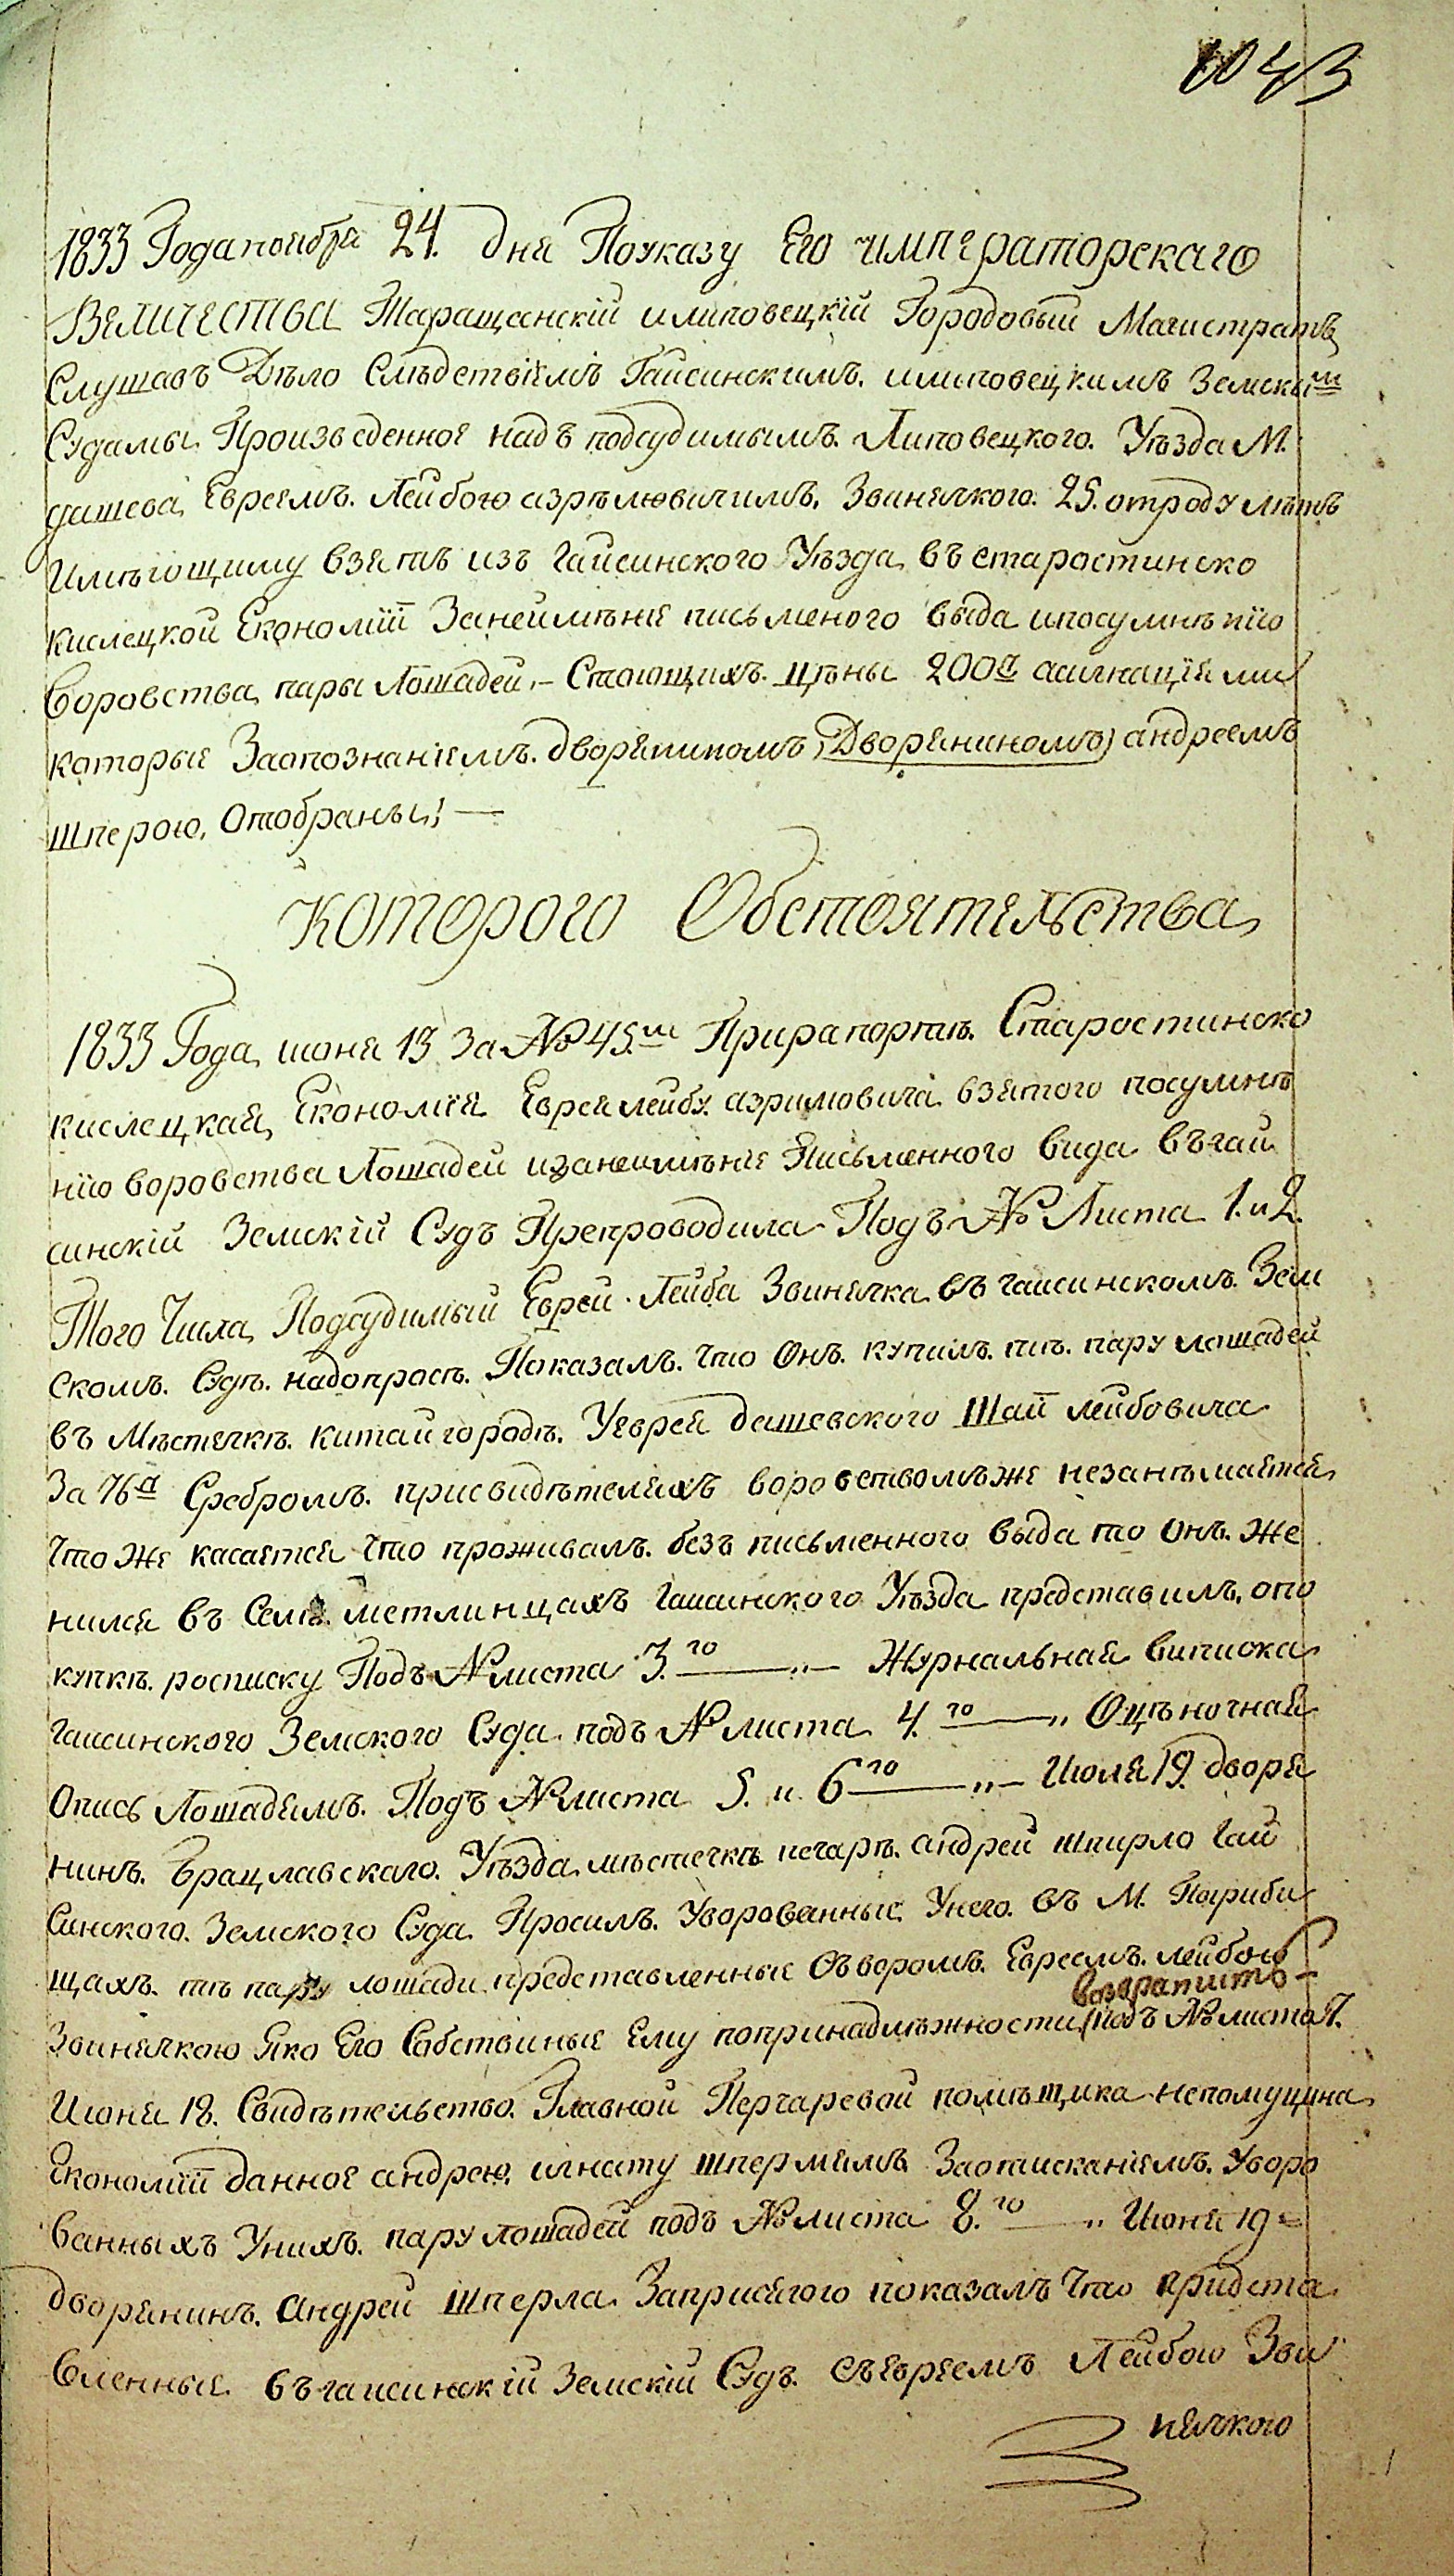 1043
1833 Года ноября 24. дня По указу Его императорскаго
Величества Таращанскій и липовецкій Городовый Магистратъ
Слушавъ Дѣло Слѣдствіемъ Гайсинскимъ. и липовецкимъ Земским
Судамы Произведенное надъ подсудимымъ. Липовецкого. Уѣзда М.
дашева Евреемъ. Лейбою азрѣлювичимъ. Звинячкого. 25. отроду лѣтъ
Имѣющиму взятъ изъ Гайсинского Уѣзда въ старостинско
кислецкой Економіи За неимѣние письменого выда и по сумнѣнію
воровства пары Лошадей,- Стоющихъ. цѣны 200 асигнаціями
которые За опознаниемъ. дворянином (Дворянином) андреемъ
шперою, Отобраны; —
Которого Обстоятельства
1833 Года июня 13 За № 45.м При рапортѣ. Старостинско
кислецкая Економія Еврея лейбу. азрилювича взятого по сумнѣ
нію воровства Лошадей и за неимѣние Письменного вида въ гай
синскій Земскій Судъ Препроводила Подъ № Листа 1. и 2.
Того Числа Подсудимый Еврей Лейба Звинячка въ гайсинскомъ. Зем
скомъ. Судѣ. на допросѣ. Показалъ. что Онъ. купилъ. тѣ. пару лошадей
въ Мѣстечкѣ. китайгородѣ. У еврея дашевского Шаи лейбовича
За 76 Сребромъ. при свидѣтеляхъ воровствомъ же незанѣмается
что же касается что проживалъ. безъ письменного выда то Онъ. же
нился въ Селѣ метлинцахъ Гайсинского Уѣзда представилъ, о по
купкѣ. росписку Подъ № листа 3.го —„— Журнальная виписка
Гайсинского Земского Суда подъ № листа 4.го —„ Оцѣночная
Опись Лошадямъ. Подъ № листа 5. и 6го —„— Июля 19. дворя
нинъ. Брацлавскаго. Уѣзда мѣстечкѣ печарѣ. андрей шпирло Гай
синского. Земского Суда Просилъ. Уворованные Унего. въ М. Погриби
щахъ. тѣ пару лошади представленные Съ воромъ. Евреемъ. лейбою
возвратить
Звинячкою Яко Его Собствиные Ему по принадлѣжности (подъ № листа 7.
Июня 18. Свидѣтельство. Главной Перчаревой помѣщика непомуцина
Економіи данное андрею, игнату шпермямъ За отисканиемъ. Уворо
ванныхъ Унихъ. пару лошадей подъ № листа 8.го —„ Июня 19
дворянинъ. андрей шперла За присягого показалъ что придста
вленные въ гайсинскій Земскій Судъ. съ евреемъ Лейбою Зви
нячкого